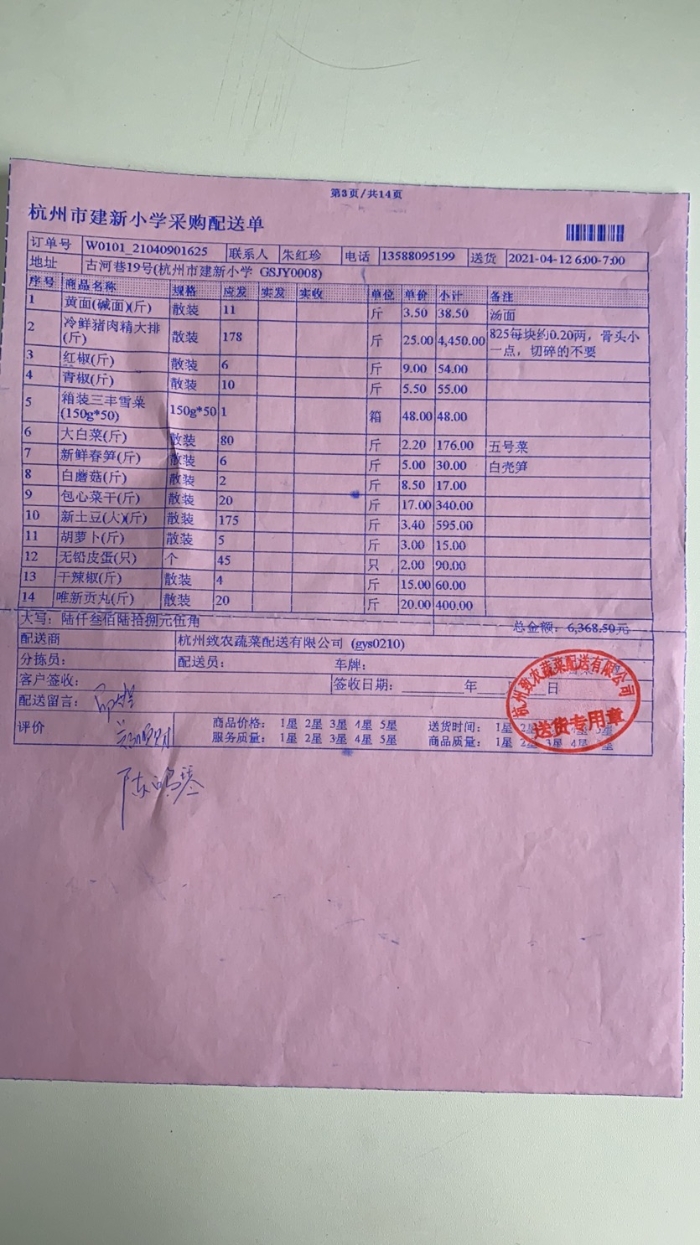 第3页/共14页
杭州市建新小学采购配送单
订单号 W0101_21040901625 联系人 朱红珍 电话 13588095199 送货 2021-04-12 6:00-7:00
地址 古河巷19号(杭州市建新小学 GSJY0008)
序号 商品名称 规格 应发 实发 实收 单位 单价 小计 备注
1 黄面(碱面)(斤) 散装 11 斤 3.50 38.50 汤面
2 冷鲜猪肉精大排(斤) 散装 178 斤 25.00 4,450.00 825每块约0.20两，骨头小一点，切碎的不要
3 红椒(斤) 散装 6 斤 9.00 54.00
4 青椒(斤) 散装 10 斤 5.50 55.00
5 箱装三丰雪菜(150g*50) 150g*50 1 箱 48.00 48.00
6 大白菜(斤) 散装 80 斤 2.20 176.00 五号菜
7 新鲜春笋(斤) 散装 6 斤 5.00 30.00 白壳笋
8 白蘑菇(斤) 散装 2 斤 8.50 17.00
9 包心菜干(斤) 散装 20 斤 17.00 340.00
10 新土豆(大)(斤) 散装 175 斤 3.40 595.00
11 胡萝卜(斤) 散装 5 斤 3.00 15.00
12 无铅皮蛋(只) 个 45 只 2.00 90.00
13 干辣椒(斤) 散装 4 斤 15.00 60.00
14 唯新贡丸(斤) 散装 20 斤 20.00 400.00
大写: 陆仟叁佰陆拾捌元伍角 总金额: 6,368.50元
配送商 杭州致农蔬菜配送有限公司 (gys0210)
分拣员: 配送员: 车牌:
客户签收: 签收日期: 年 日
配送留言:
评价 商品价格: 1星 2星 3星 4星 5星 送货时间: 1星 2星 3星 4星 5星
服务质量: 1星 2星 3星 4星 5星 商品质量: 1星 2星 3星 4星 5星
杭州致农蔬菜配送有限公司
送货专用章